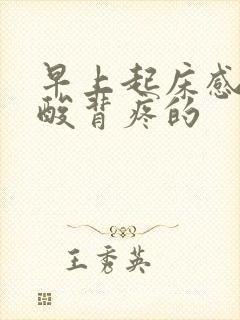 早上起床感
酸背疼的
王秀英